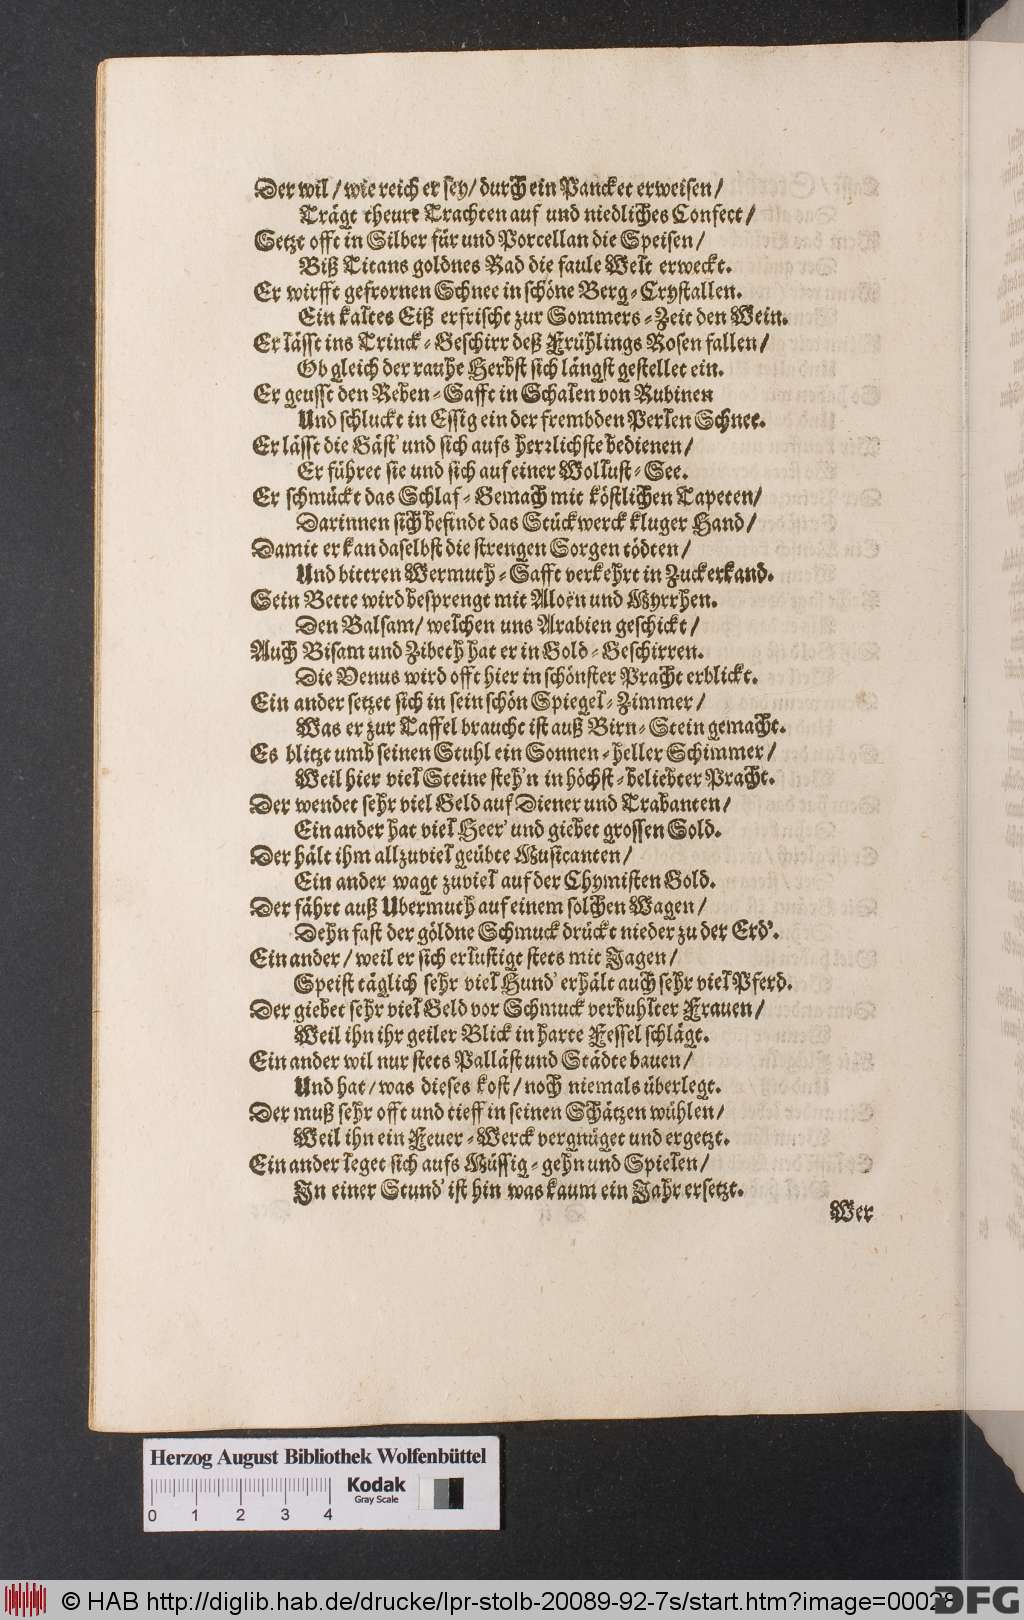 Der wil / wie reich er sey / durch ein Pancket erweisen /
Trägt theure Trachten auf und niedliches Confect /
Setzt offt in Silber für und Porcellan die Speisen /
Biß Titans goldnes Rad die faule Welt erweckt.
Er wirfft gefrornen Schnee in schöne Berg-Crystallen.
Ein kaltes Eiß erfrischt zur Sommers-Zeit den Wein.
Er lässt ins Trinck-Geschirr deß Frühlings Rosen fallen /
Ob gleich der rauhe Herbst sich längst gestellet ein.
Er geusst den Reben-Safft in Schalen von Rubinen
Und schluckt in Essig ein der frembden Perlen Schnee.
Er lässt die Gäst' und sich aufs herrlichste bedienen /
Er führet sie und sich auf einer Wollust-See.
Er schmückt das Schlaf-Gemach mit köstlichen Tapeten /
Darinnen sich befindt das Stückwerck kluger Hand /
Damit er kan daselbst die strengen Sorgen tödten /
Und bittren Wermuth-Safft verkehrt in Zuckerkand.
Sein Bette wird besprengt mit Aloën und Myrrhen.
Den Balsam / welchen uns Arabien geschickt /
Auch Bisam und Zibeth hat er in Gold-Geschirren.
Die Venus wird offt hier in schönster Pracht erblickt.
Ein ander setzet sich in sein schön Spiegel-Zimmer /
Was er zur Taffel braucht ist auß Birn-Stein gemacht.
Es blitzt umb seinen Stuhl ein Sonnen-heller Schimmer /
Weil hier viel Steine steh'n in höchst-beliebter Pracht.
Der wendet sehr viel Geld auf Diener und Trabanten /
Ein ander hat viel Heer' und giebet grossen Sold.
Der hält ihm allzuviel geübte Musicanten /
Ein ander wagt zuviel auf der Chymisten Gold.
Der fährt auß Ubermuth auf einem solchen Wagen /
Dehn fast der göldne Schmuck drückt nieder zu der Erd'.
Ein ander / weil er sich erlustigt stets mit Jagen /
Speist täglich sehr viel Hund' erhält auch sehr viel Pferd.
Der giebet sehr viel Geld vor Schmuck verbuhlter Frauen /
Weil ihn ihr geiler Blick in harte Fessel schlägt.
Ein ander wil nur stets Palläst und Städte bauen /
Und hat / was dieses kost / noch niemals überlegt.
Der muß sehr offt und tieff in seinen Schätzen wühlen /
Weil ihn ein Feuer-Werck vergnüget und ergetzt.
Ein ander leget sich aufs Müssig-gehn und Spielen /
In einer Stund' ist hin was kaum ein Jahr ersetzt.
Wer
Herzog August Bibliothek Wolfenbüttel
Kodak
Gray Scale
0 1 2 3 4
© HAB http://diglib.hab.de/drucke/lpr-stolb-20089-92-7s/start.htm?image=00028
DFG